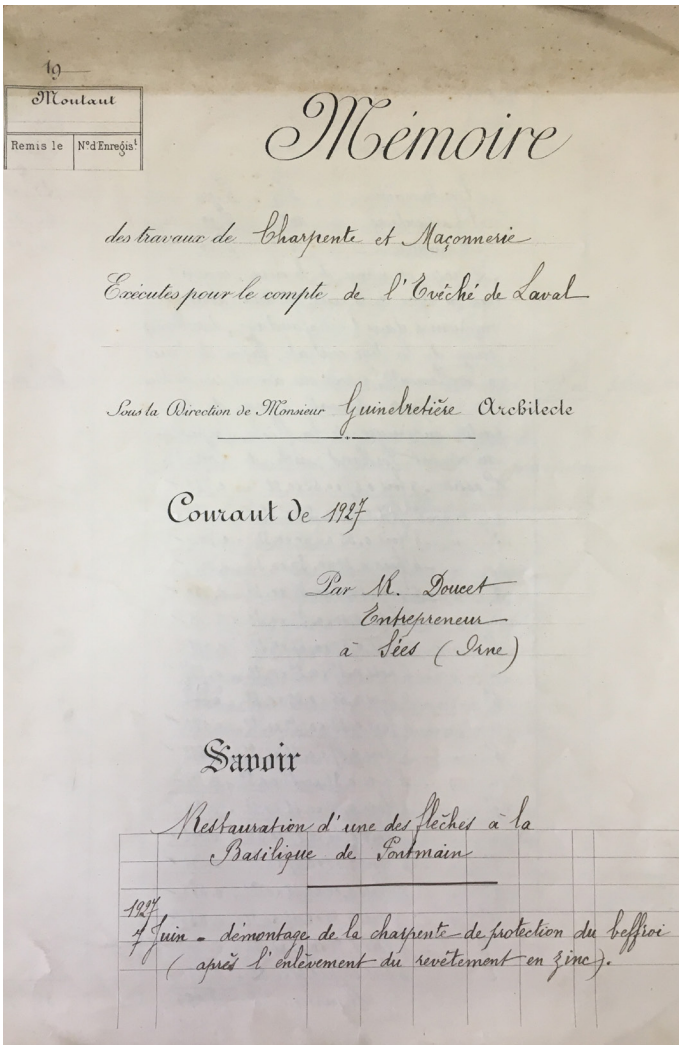 19
Montant
Remis le
N° d'Enregist.
Mémoire
des travaux de Charpente et Maçonnerie
Exécutés pour le compte de l'Evêché de Laval
Sous la Direction de Monsieur Guinebretière Architecte
Courant de 1927
Par M. Doucet
Entrepreneur
à Sées (Orne)
Savoir
Restauration d'une des flèches à la
Basilique de Pontmain
1927
7 Juin - démontage de la charpente de protection du beffroi
(après l'enlèvement du revêtement en zinc).